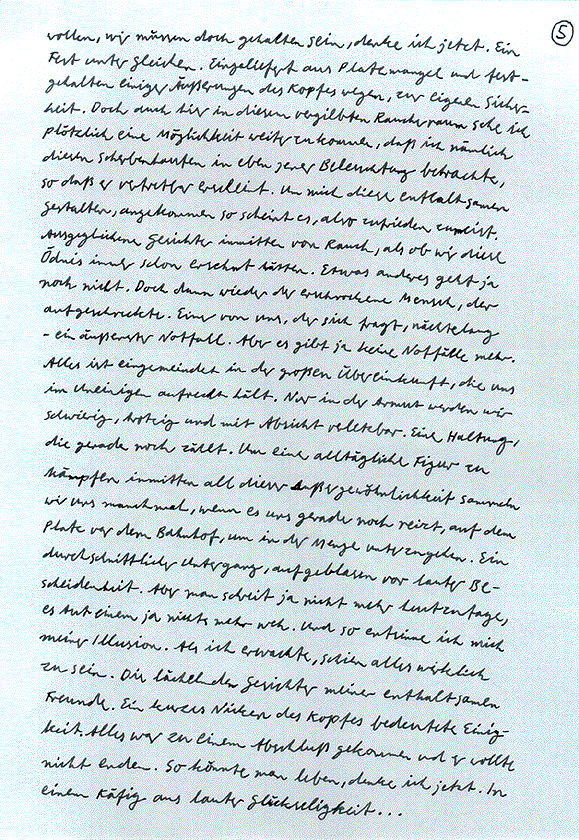 5
wollen, wir müssen doch gehalten sein, denke ich jetzt. Ein
Fest unter Gleichen. Eingeliefert aus Platzmangel und fest-
gehalten einiger Äußerungen des Kopfes wegen, zur eigenen Sicher-
heit. Doch auch hier in diesem vergilbten Raucherraum sehe ich
plötzlich eine Möglichkeit weiterzukommen, daß ich nämlich
diesen Scherbenhaufen in eben jener Beleuchtung betrachte,
so daß er vertretbar erscheint. Um mich diese enthaltsamen
Gestalten, angekommen so scheint es, also zufrieden zumeist.
Ausgeglichene Gesichter inmitten von Rauch, als ob wir diese
Ödnis immer schon ersehnt hätten. Etwas anderes geht ja
noch nicht. Doch dann wieder der erschrockene Mensch, der
aufgeschreckte. Einer von uns, der sich fragt, nächtelang
- ein äußerster Notfall. Aber es gibt ja keine Notfälle mehr.
Alles ist eingemeindet in der großen Übereinkunft, die uns
im Uneinigen aufrecht hält. Nur in der Armut werden wir
schwierig, trotzig und mit Absicht verletzbar. Eine Haltung,
die gerade noch zählt. Um eine alltägliche Figur zu
kämpfen inmitten all dieser Außergewöhnlichkeit sammeln
wir uns manchmal, wenn es uns gerade noch reizt, auf dem
Platz vor dem Bahnhof, um in der Menge unterzugehen. Ein
durchschnittlicher Untergang, aufgeblasen vor lauter Be-
scheidenheit. Aber man schreit ja nicht mehr heutzutage,
es tut einem ja nichts mehr weh. Und so entsinne ich mich
meiner Illusion. Als ich erwachte, schien alles wirklich
zu sein. Die lächelnden Gesichter meiner enthaltsamen
Freunde. Ein kurzes Nicken des Kopfes bedeutete Einig-
keit. Alles war zu einem Abschluß gekommen und er wollte
nicht enden. So könnte man leben, denke ich jetzt. In
einem Käfig aus lauter Glückseligkeit...